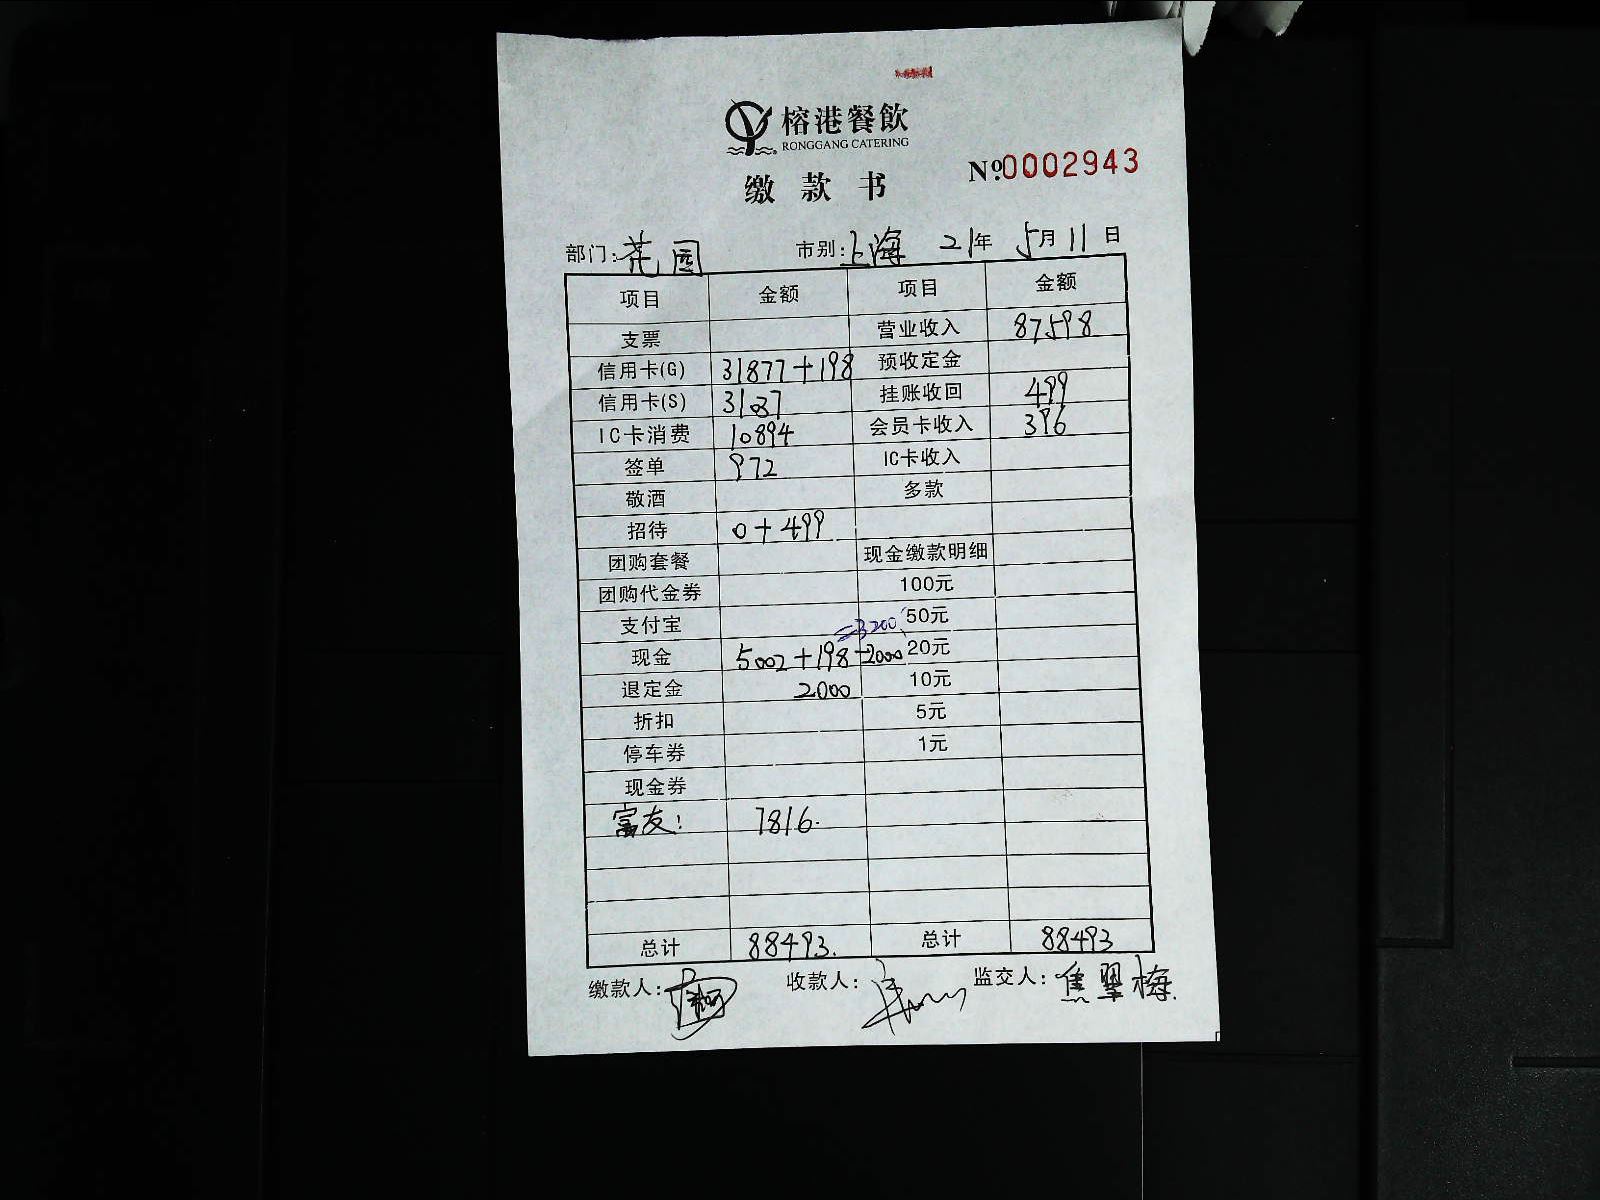 榕港餐飲
RONGGANG CATERING
缴款书 Nº.0002943
部门:花园 市别:上海 21年 5月11日
项目 金额 项目 金额
支票 营业收入 87598
信用卡(G) 31877+198 预收定金
信用卡(S) 31037 挂账收回 499
IC卡消费 10894 会员卡收入 396
签单 972 IC卡收入
敬酒 多款
招待 0+499
团购套餐 现金缴款明细
团购代金券 100元
支付宝 =3200 50元
现金 5002+198-2000 20元
退定金 2000 10元
折扣 5元
停车券 1元
现金券
富友: 7816.
总计 88493. 总计 88493
缴款人: 收款人: 监交人:焦翠梅